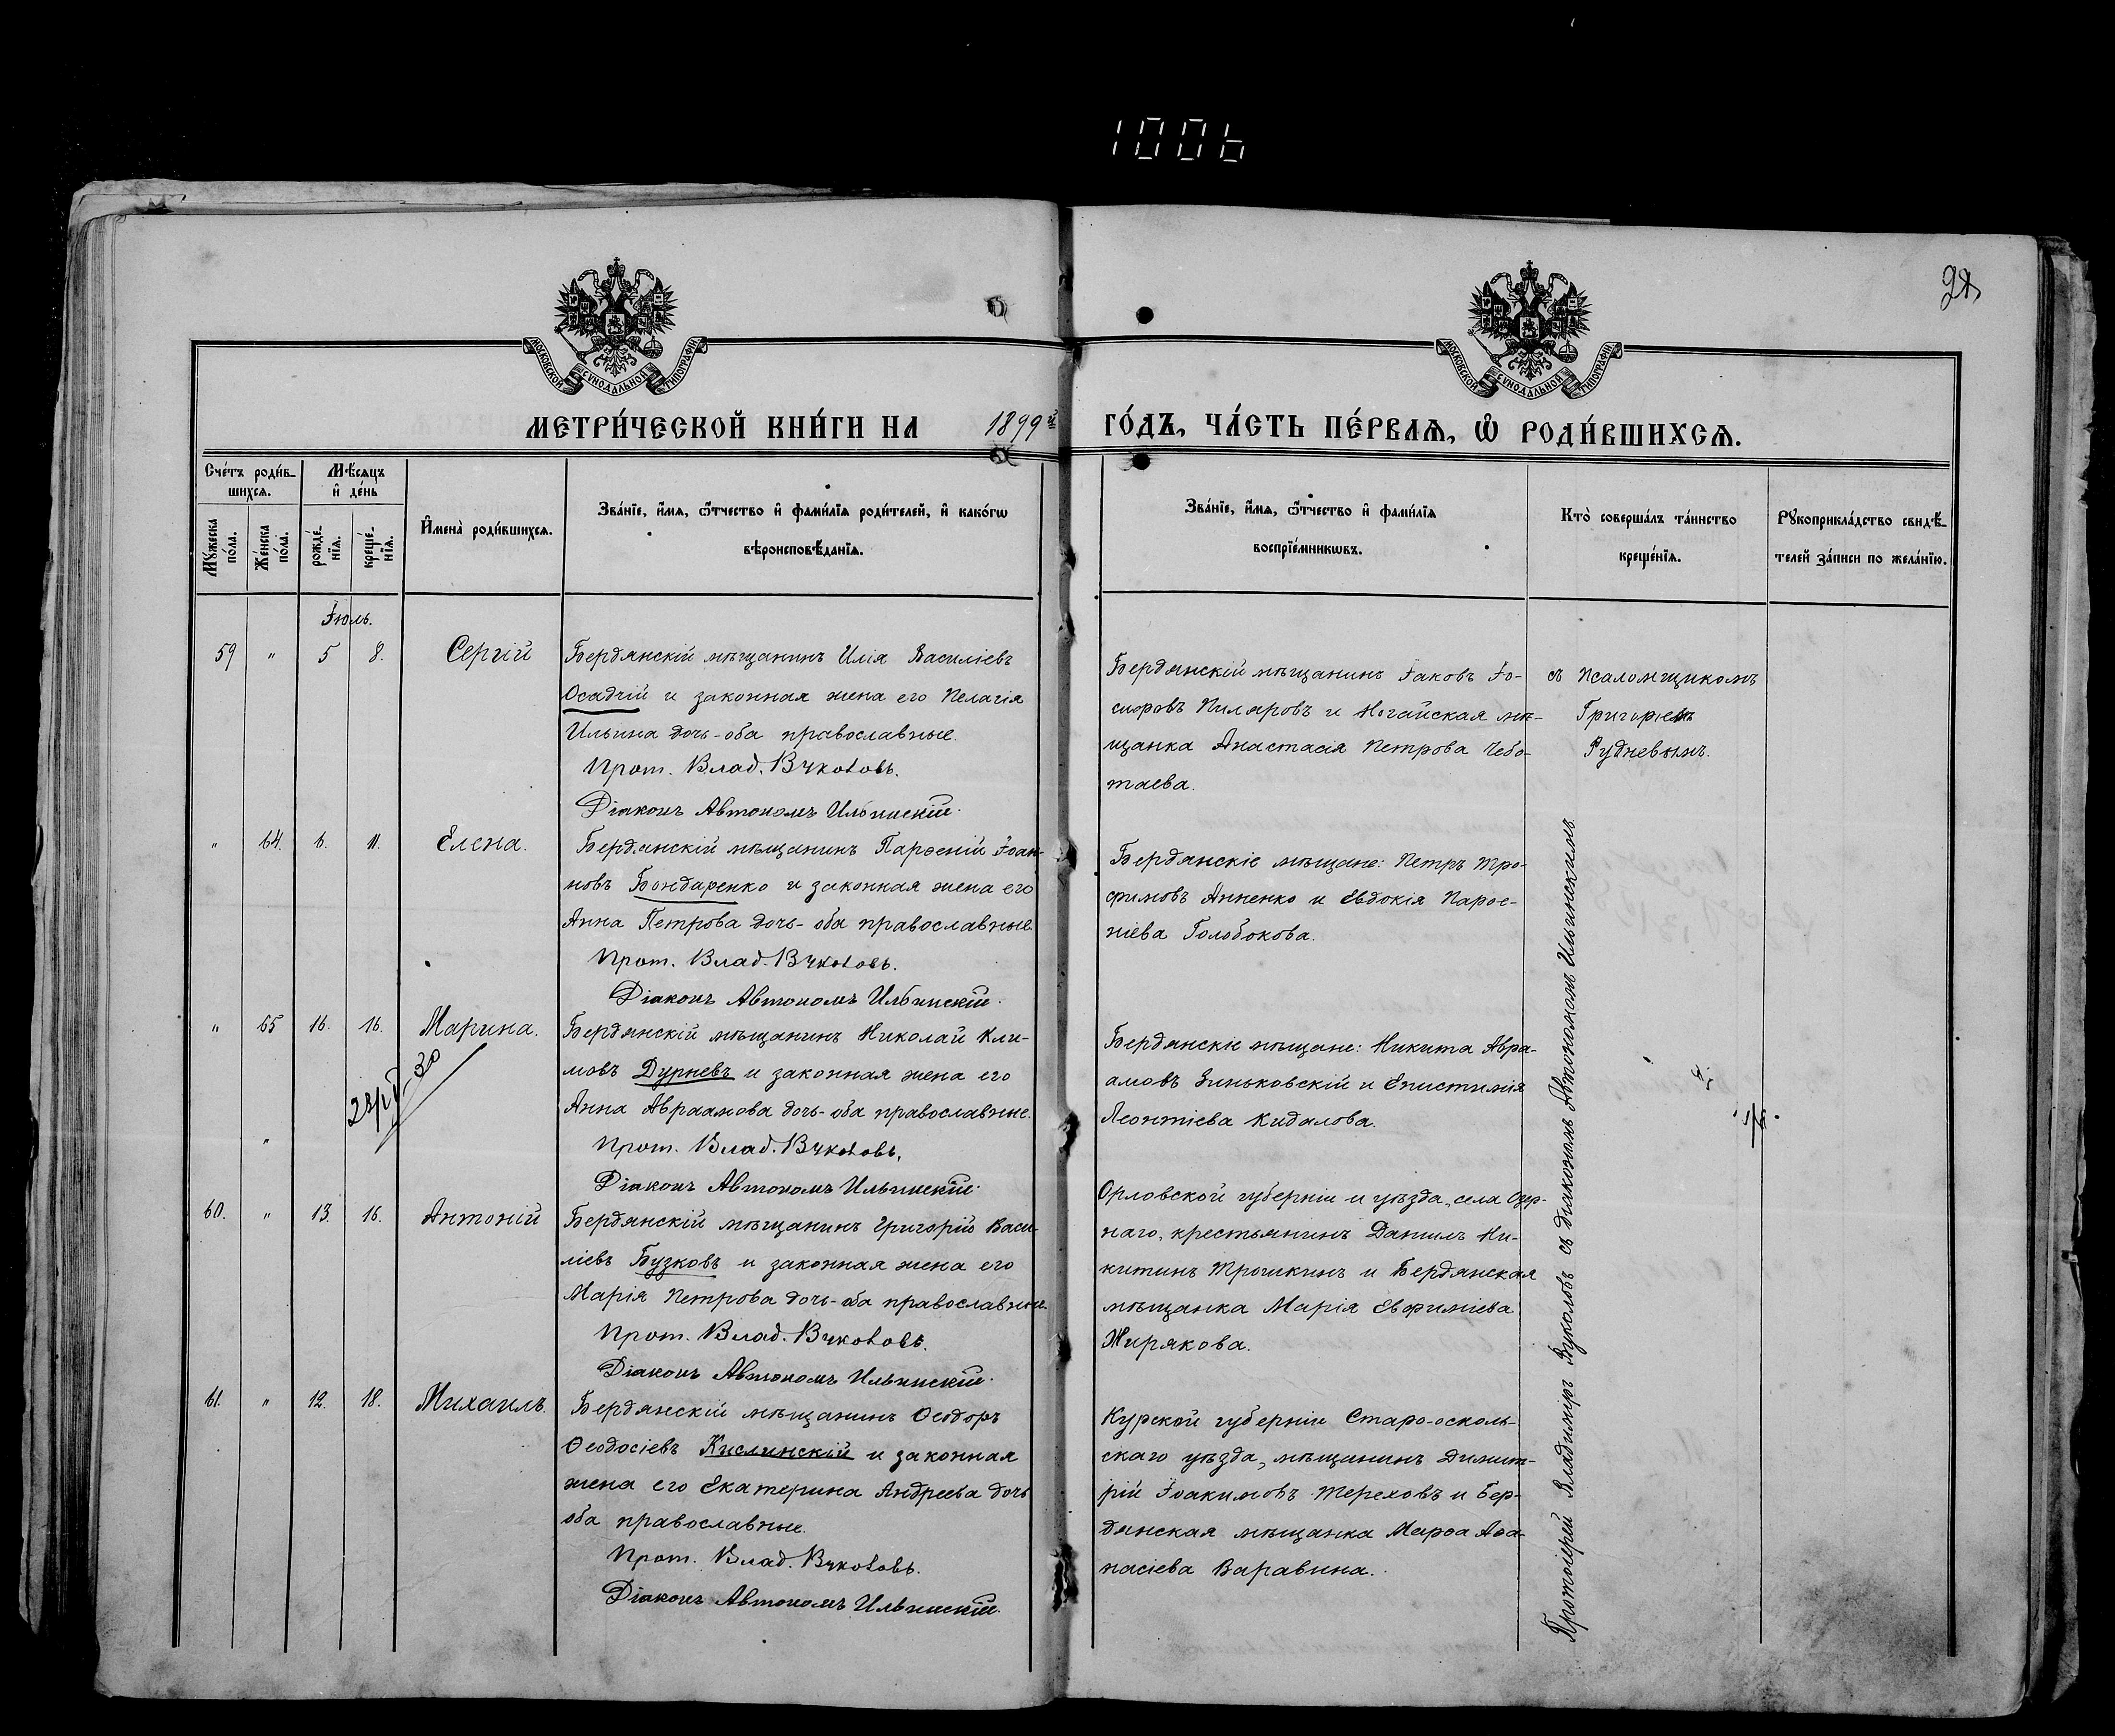 1006
МОСКОВСКОЙ СѴНОДАЛЬНОЙ ТИПОГРАФІИ
МОСКОВСКОЙ СѴНОДАЛЬНОЙ ТИПОГРАФІИ
МЕТРИ́ЧЕСКОЙ КНИ́ГИ НА 1899й ГО́ДЪ, ЧА́СТЬ ПЕ́РВАѦ, Ѡ҆ РОДИ́ВШИХСѦ.
Сче́тъ роди́в-
шихсѧ.
Мѣ́сѧцъ
и҆ де́нь
Мꙋ́жеска
по́ла.
Же́нска
по́ла.
рожде́-
нїѧ.
креще́-
нїѧ.
И҆мена̀ роди́вшихсѧ.
Зва́нїе, и҆́мѧ, ѻ҆́тчество и҆ фами́лїѧ роди́телей, и҆ како́гѡ
вѣроисповѣ́данїѧ.
Зва́нїе, и҆́мѧ, ѻ҆́тчество и҆ фами́лїѧ
воспрїе́мникѡвъ.
Кто̀ соверша́лъ та́инство
креще́нїѧ.
Рꙋкоприкла́дство свидѣ́-
телей за́писи по жела́нїю.
Іюль.
59 " 5 8. Сергій
Бердянскій мѣщанинъ Илія Василіевъ
Осадчій и законная жена его Пелагія
Ильина дочь - оба православные.
Прот. Влад. Вуколовъ.
Діаконъ Автономъ Ильинскій.
Бердянскій мѣщанинъ Іаковъ Іо-
сифовъ Пиляровъ и Ногайская мѣ-
щанка Анастасія Петрова Чебо-
таева.
съ псаломщикомъ
Григоріемъ
Рудневымъ.
" 64. 6. 11. Елена.
Бердянскій мѣщанинъ Парѳеній Іоан-
новъ Бондаренко и законная жена его
Анна Петрова дочь - оба православные.
Прот. Влад. Вуколовъ.
Діаконъ Автономъ Ильинскій.
Бердянскіе мѣщане: Петръ Тро-
фимовъ Анненко и Евдокія Парѳе-
ніева Голобокова.
" 65 16. 16. Марина.
Бердянскій мѣщанинъ Николай Кли-
мовъ Дурневъ и законная жена его
Анна Авраамова дочь - оба православные.
Прот. Влад. Вуколовъ.
Діаконъ Автономъ Ильинскій.
Бердянскіе мѣщане: Никита Авра-
амовъ Зиньковскій и Епистимія
Леонтіева Кидалова.
"
60. " 13. 16. Антоній
Бердянскій мѣщанинъ Григорій Васи-
ліевъ Бузковъ и законная жена его
Марія Петрова дочь - оба православные.
Прот. Влад. Вуколовъ.
Діаконъ Автономъ Ильинскій.
Орловской губерніи и уѣзда, села Озер-
наго, крестьянинъ Даниилъ Ни-
китинъ Трошкинъ и Бердянская
мѣщанка Марія Евфиміева
Жирякова.
61. " 12. 18. Михаилъ.
Бердянскій мѣщанинъ Ѳеодоръ
Ѳеодосіевъ Кислинскій и законная
жена его Екатерина Андреева дочь
оба православные.
Прот. Влад. Вуколовъ.
Діаконъ Автономъ Ильинскій.
Курской губерніи Старо-осколь-
скаго уѣзда, мѣщанинъ Димит-
рій Іоакимовъ Тереховъ и Бер-
дянская мѣщанка Марѳа Аѳа-
насіева Варавина.
Протоіерей Владиміръ Вуколовъ съ діакономъ Автономомъ Ильинскимъ